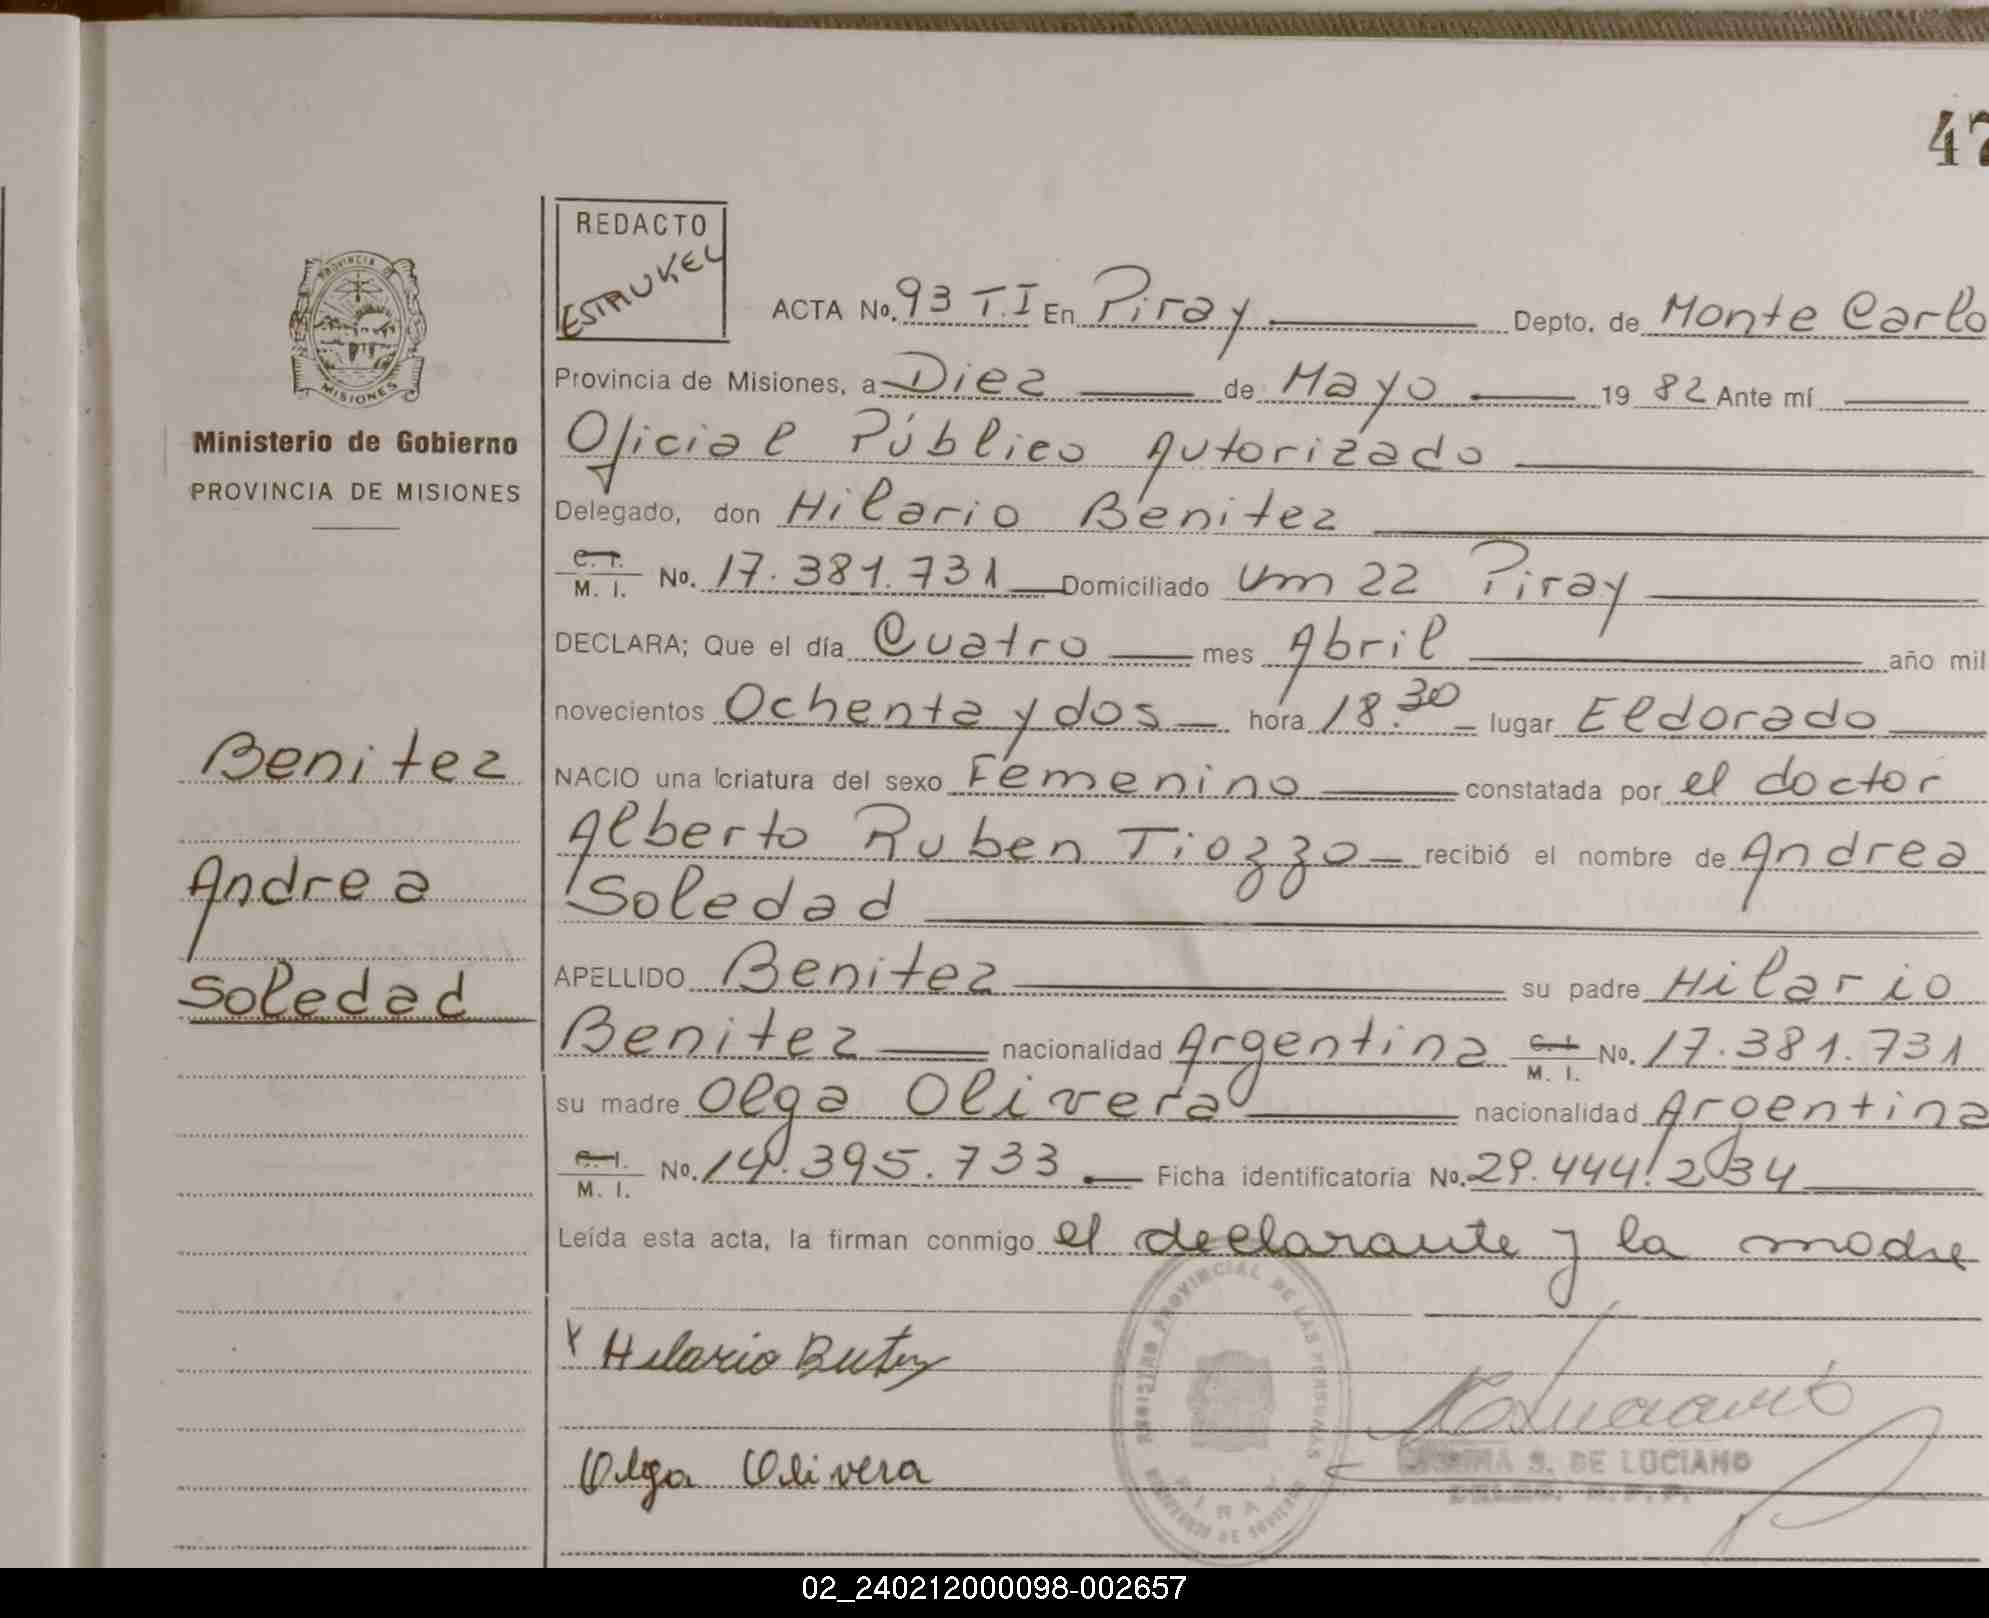 47
REDACTO
ESTAUKEL
PROVINCIA D
MISIONES
Ministerio de Gobierno
PROVINCIA DE MISIONES
Benitez
Andrea
Soledad
ACTA No. 93 T.I En Piray Depto. de Monte Carlo
Provincia de Misiones, a Diez de Mayo 19 82 Ante mí
Oficial Público Autorizado
Delegado, don Hilario Benitez
C. I. M. I. No. 17.381.731 Domiciliado km 22 Piray
DECLARA; Que el día Cuatro mes Abril año mil
novecientos Ochenta y dos hora 18.30 lugar Eldorado
NACIO una criatura del sexo Femenino constatada por el doctor
Alberto Ruben Tiozzo recibió el nombre de Andrea
Soledad
APELLIDO Benitez su padre Hilario
Benitez nacionalidad Argentina C. I. M. I. No. 17.381.731
su madre Olga Olivera nacionalidad Argentina
C. I. M. I. No. 14.395.733 Ficha identificatoria No. 29.444.234
Leída esta acta, la firman conmigo el declarante y la madre
x Hilario Benitez
Olga Olivera
REGISTRO PROVINCIAL DE LAS PERSONAS
PIRAY
S. DE LUCIANO
02_240212000098-002657